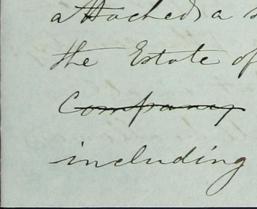 attached, a
the Estate of
Company
including